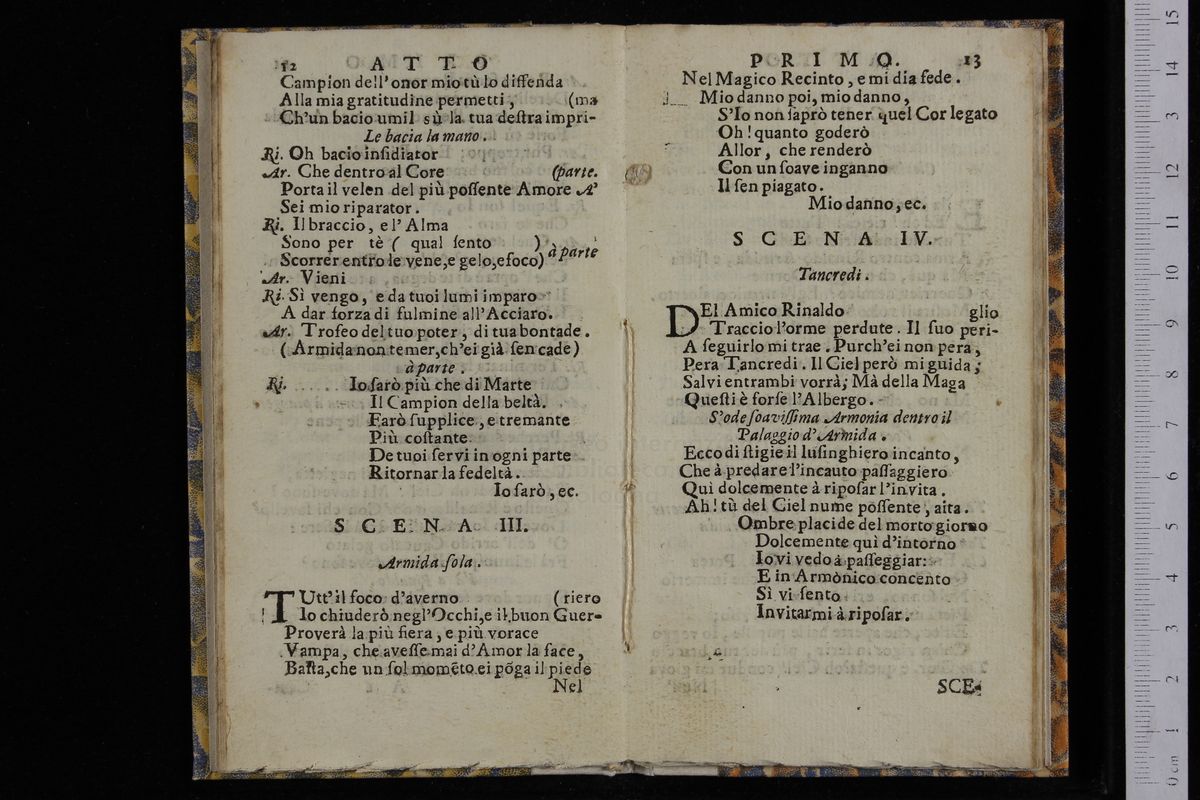 12 ATTO
Campion dell'onor mio tù lo diffenda
Alla mia gratitudine permetti, (ma
Ch'un bacio umil sù la tua deſtra impri-
Le bacia la mano.
Ri. Oh bacio inſidiator
Ar. Che dentro al Core (parte.
Porta il velen del più poſſente Amore A'
Sei mio riparator.
Ri. Il braccio, e l'Alma
Sono per tè ( qual ſento )
Scorrer entro le vene, e gelo, e foco) à parte
Ar. Vieni
Ri. Sì vengo, e da tuoi lumi imparo
A dar forza di fulmine all'Acciaro.
Ar. Trofeo del tuo poter, di tua bontade.
( Armida non temer, ch'ei già ſen cade)
à parte.
Ri. Io ſarò più che di Marte
Il Campion della beltà.
Farò ſupplice, e tremante
Più coſtante
De tuoi ſervi in ogni parte
Ritornar la fedeltà.
Io ſarò, ec.
SCENA III.
Armida ſola.
TUtt'il foco d'averno (riero
Io chiuderò negl'Occhi, e il buon Guer-
Proverà la più fiera, e più vorace
Vampa, che aveſſe mai d'Amor la face,
Baſta, che un ſol momẽto ei põga il piede
Nel
PRIMO. 13
Nel Magico Recinto, e mi dia fede.
Mio danno poi, mio danno,
S'Io non ſaprò tener quel Cor legato
Oh! quanto goderò
Allor, che renderò
Con un ſoave inganno
Il ſen piagato.
Mio danno, ec.
SCENA IV.
Tancredi.
DEl Amico Rinaldo glio
Traccio l'orme perdute. Il ſuo peri-
A ſeguirlo mi trae. Purch'ei non pera,
Pera Tancredi. Il Ciel però mi guida;
Salvi entrambi vorrà; Mà della Maga
Queſti è forſe l'Albergo.
S'ode ſoaviſſima Armonia dentro il
Palaggio d'Armida.
Ecco di ſtigie il luſinghiero incanto,
Che à predare l'incauto paſſaggiero
Quì dolcemente à ripoſar l'invita.
Ah! tù del Ciel nume poſſente, aita.
Ombre placide del morto giorno
Dolcemente quì d'intorno
Io vi vedo à paſſeggiar:
E in Armònico concento
Sì vi ſento
Invitarmi à ripoſar.
SCE-
15
14
3
12
11
10
9
8
7
6
5
4
3
2
1
0 cm